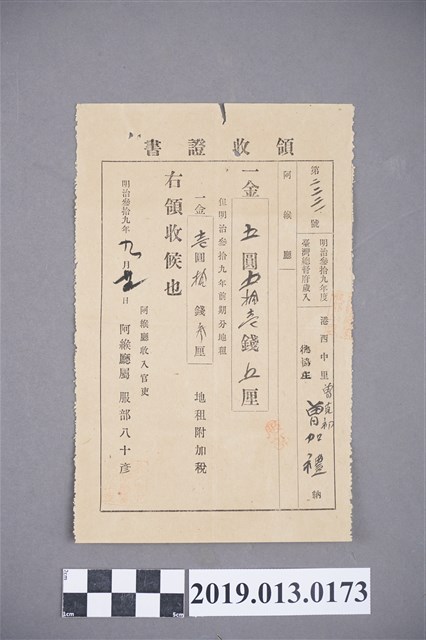 領收證書
第二三三號
明治參拾九年度
臺灣總督府歲入
阿緱廳
港西中里
德協庄
曾加禮
納
一金 五圓五拾壹錢五厘
但明治參拾九年前期分地租
一金 壹圓拾錢參厘
地租附加稅
右領收候也
明治參拾九年九月 日
阿緱廳收入官吏
阿緱廳屬 服部八十彥
2019.013.0173
1cm
5cm